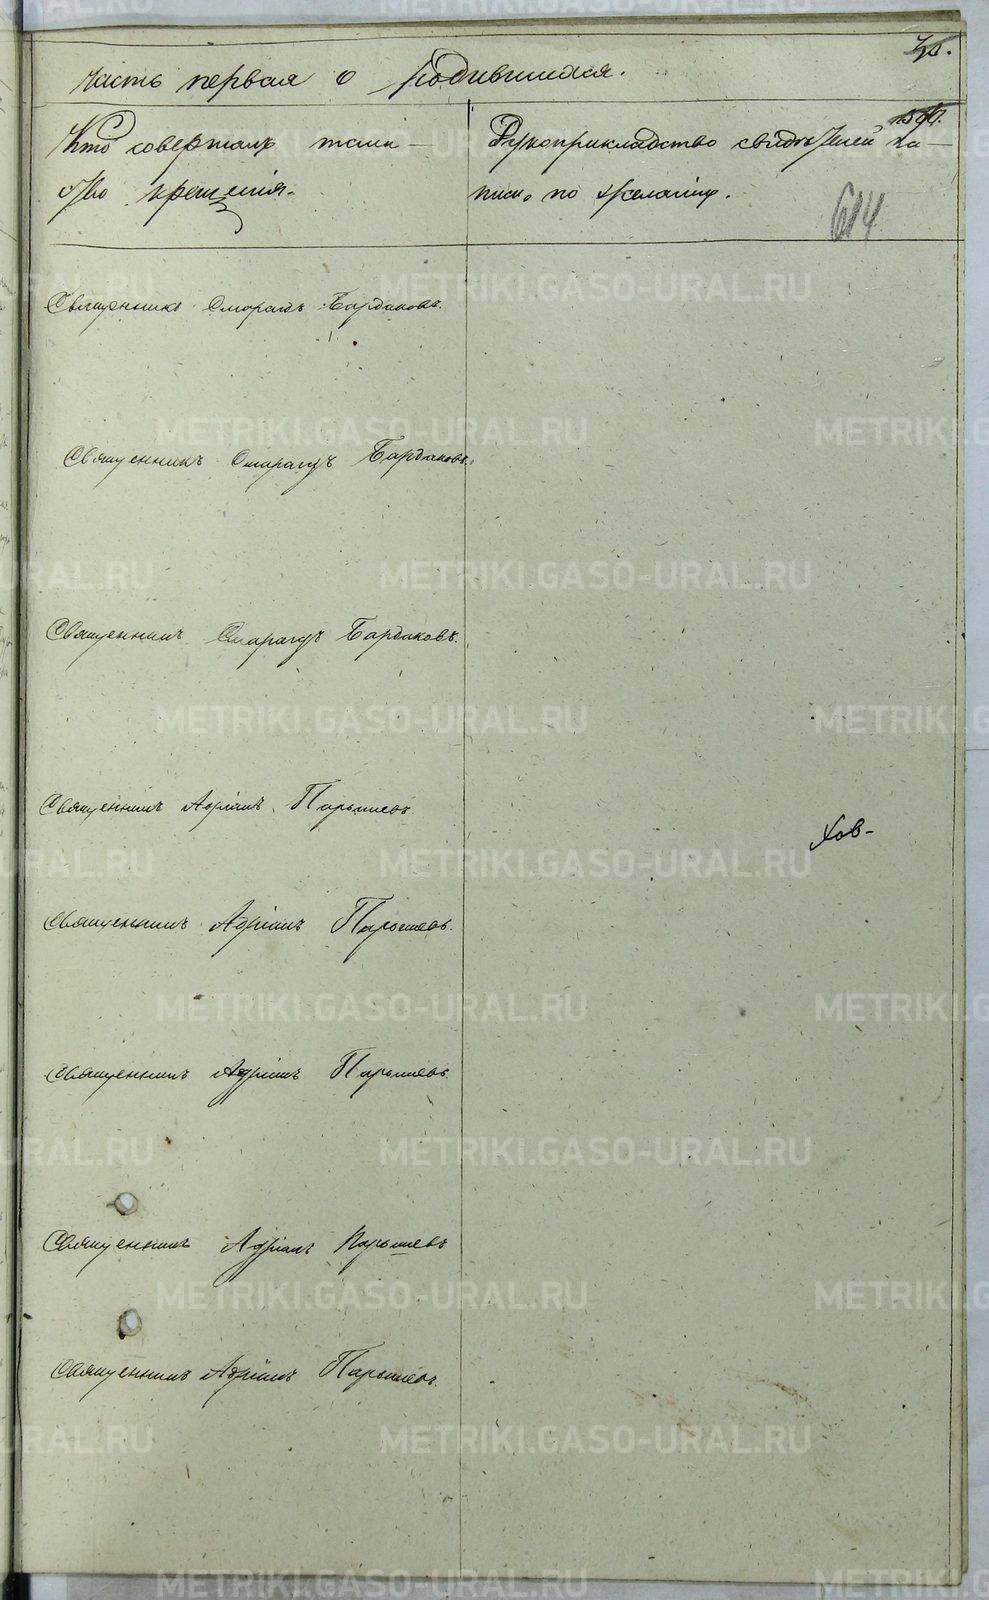 Часть первая о родившихся.
Кто совершалъ таин-
ство крещенія.
Рукоприкладство свидѣтелей за-
писи по желанію.
614
Священникъ Смарагдъ Бардаковъ.
Священникъ Смарагдъ Бардаковъ.
Священникъ Смарагдъ Бардаковъ.
Священникъ Адріанъ Парышевъ.
Хов-
Священникъ Адріанъ Парышевъ.
Священникъ Адріанъ Парышевъ.
Священникъ Адріанъ Парышевъ
Священникъ Адріанъ Парышевъ.
METRIKI.GASO-URAL.RU